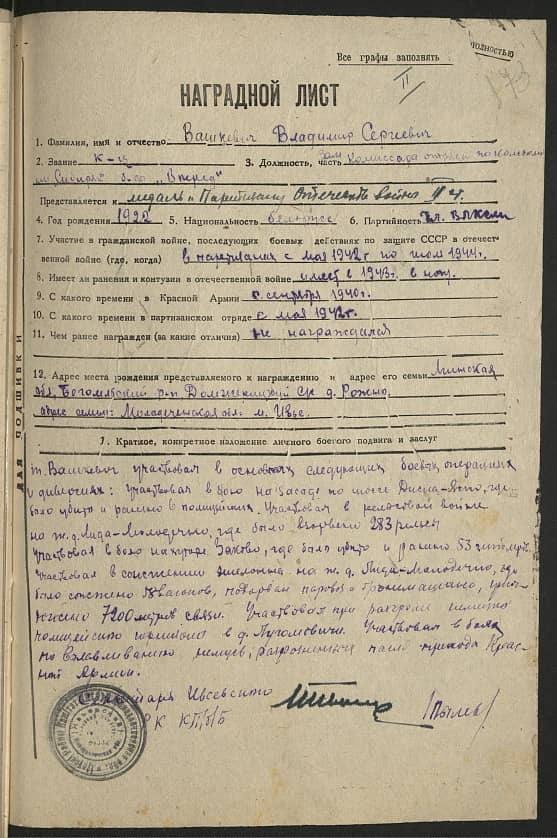 Все графы заполнять полностью
II
173
НАГРАДНОЙ ЛИСТ
1. Фамилия, имя и отчество Вашкевич Владимир Сергеевич
2. Звание к-ц 3. Должность, часть зам
комиссара отряда
"Вперед"
Представляется к медаль "Партизану Отечеств войны" II ст.
4. Год рождения 1922 5. Национальность белорус 6. Партийность чл. ВЛКСМ
7. Участие в гражданской войне, последующих боевых действиях по защите СССР в отечест
венной войне (где, когда) в партизанах с мая 1942г по июль 1944г.
8. Имеет ли ранения и контузии в отечественной войне имеет в 1943г. в ногу
9. С какого времени в Красной Армии с сентября 1940г.
10. С какого времени в партизанском отряде с мая 1942г.
11. Чем ранее награжден (за какие отличия) не награждался
12. Адрес места рождения представляемого к награждению и адрес его семьи Минская
обл. Бегомльский р-н д. Рожно
адрес семьи: Молодеченская обл. м. Ивье.
ДЛЯ ПОДШИВКИ
1. Краткое, конкретное изложение личного боевого подвига и заслуг
т. Вашкевич участвовал в основных следующих боевых операциях
и диверсиях: участвовал в бою на засаде по шоссе где
было убито и ранено 6 полицейских. Участвовал в рельсовой войне
на ж.д. Лида-Молодечно, где было взорвано 283 рельсы
Участвовал в бою на хуторе где было убито и ранено 53
участвовал в сожжении эшелона на ж.д. Лида-Молодечно, где
было сожжено вагонов, подорван паровоз
7200 метров связи. Участвовал при разгроме немецко
полицейского гарнизона в д. Участвовал в боях
по вылавливанию немцев, после прихода Крас
ной Армии.
Секретарь Ивьевского
РК КП/б/Б